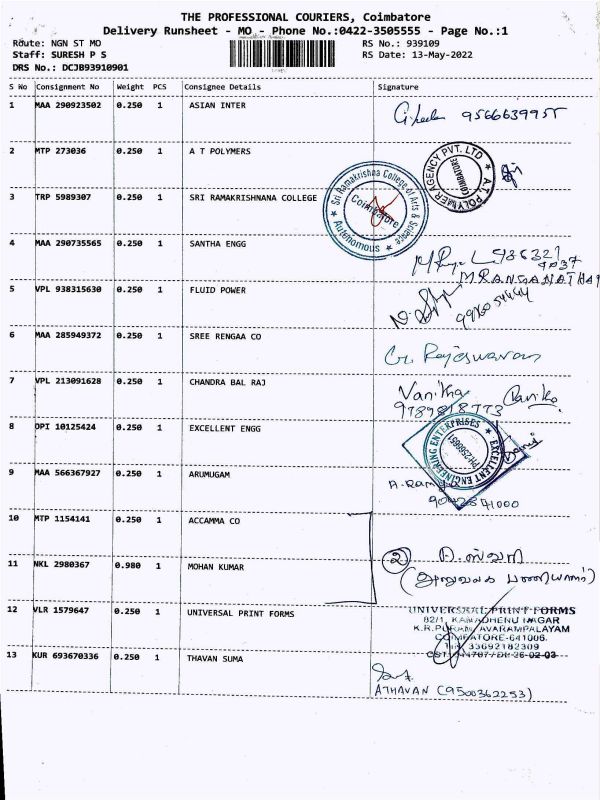 THE PROFESSIONAL COURIERS, Coimbatore
Delivery Runsheet - MO - Phone No.:0422-3505555 - Page No.:1
Route: NGN ST MO RS No.: 939109
Staff: SURESH P S RS Date: 13-May-2022
DRS No.: DCJB93910901
S No Consignment No Weight PCS Consignee Details Signature
1 MAA 290923502 0.250 1 ASIAN INTER 9566639955
2 MTP 273036 0.250 1 A T POLYMERS
A.T. POLYMER AGENCY PVT. LTD
COIMBATORE
3 TRP 5989307 0.250 1 SRI RAMAKRISHNANA COLLEGE
Sri Ramakrishna College of Arts & Science
Coimbatore
Autonomous
4 MAA 290735565 0.250 1 SANTHA ENGG
M RANGANATHAN
5 VPL 938315630 0.250 1 FLUID POWER
6 MAA 285949372 0.250 1 SREE RENGAA CO
G. Rajeswaran
7 VPL 213091628 0.250 1 CHANDRA BAL RAJ Vanitha
8 OPI 10125424 0.250 1 EXCELLENT ENGG
EXCELLENT ENGINEERING ENTERPRISES
9 MAA 566367927 0.250 1 ARUMUGAM
10 MTP 1154141 0.250 1 ACCAMMA CO
11 NKL 2980367 0.980 1 MOHAN KUMAR 2
12 VLR 1579647 0.250 1 UNIVERSAL PRINT FORMS
UNIVERSAL PRINT FORMS
82/1, KAMADHENU NAGAR
K.R.PURAM, AVARAMPALAYAM
COIMBATORE-641006.
TIN 33692182309
13 KUR 693670336 0.250 1 THAVAN SUMA
ATHAVAN (9500362253)